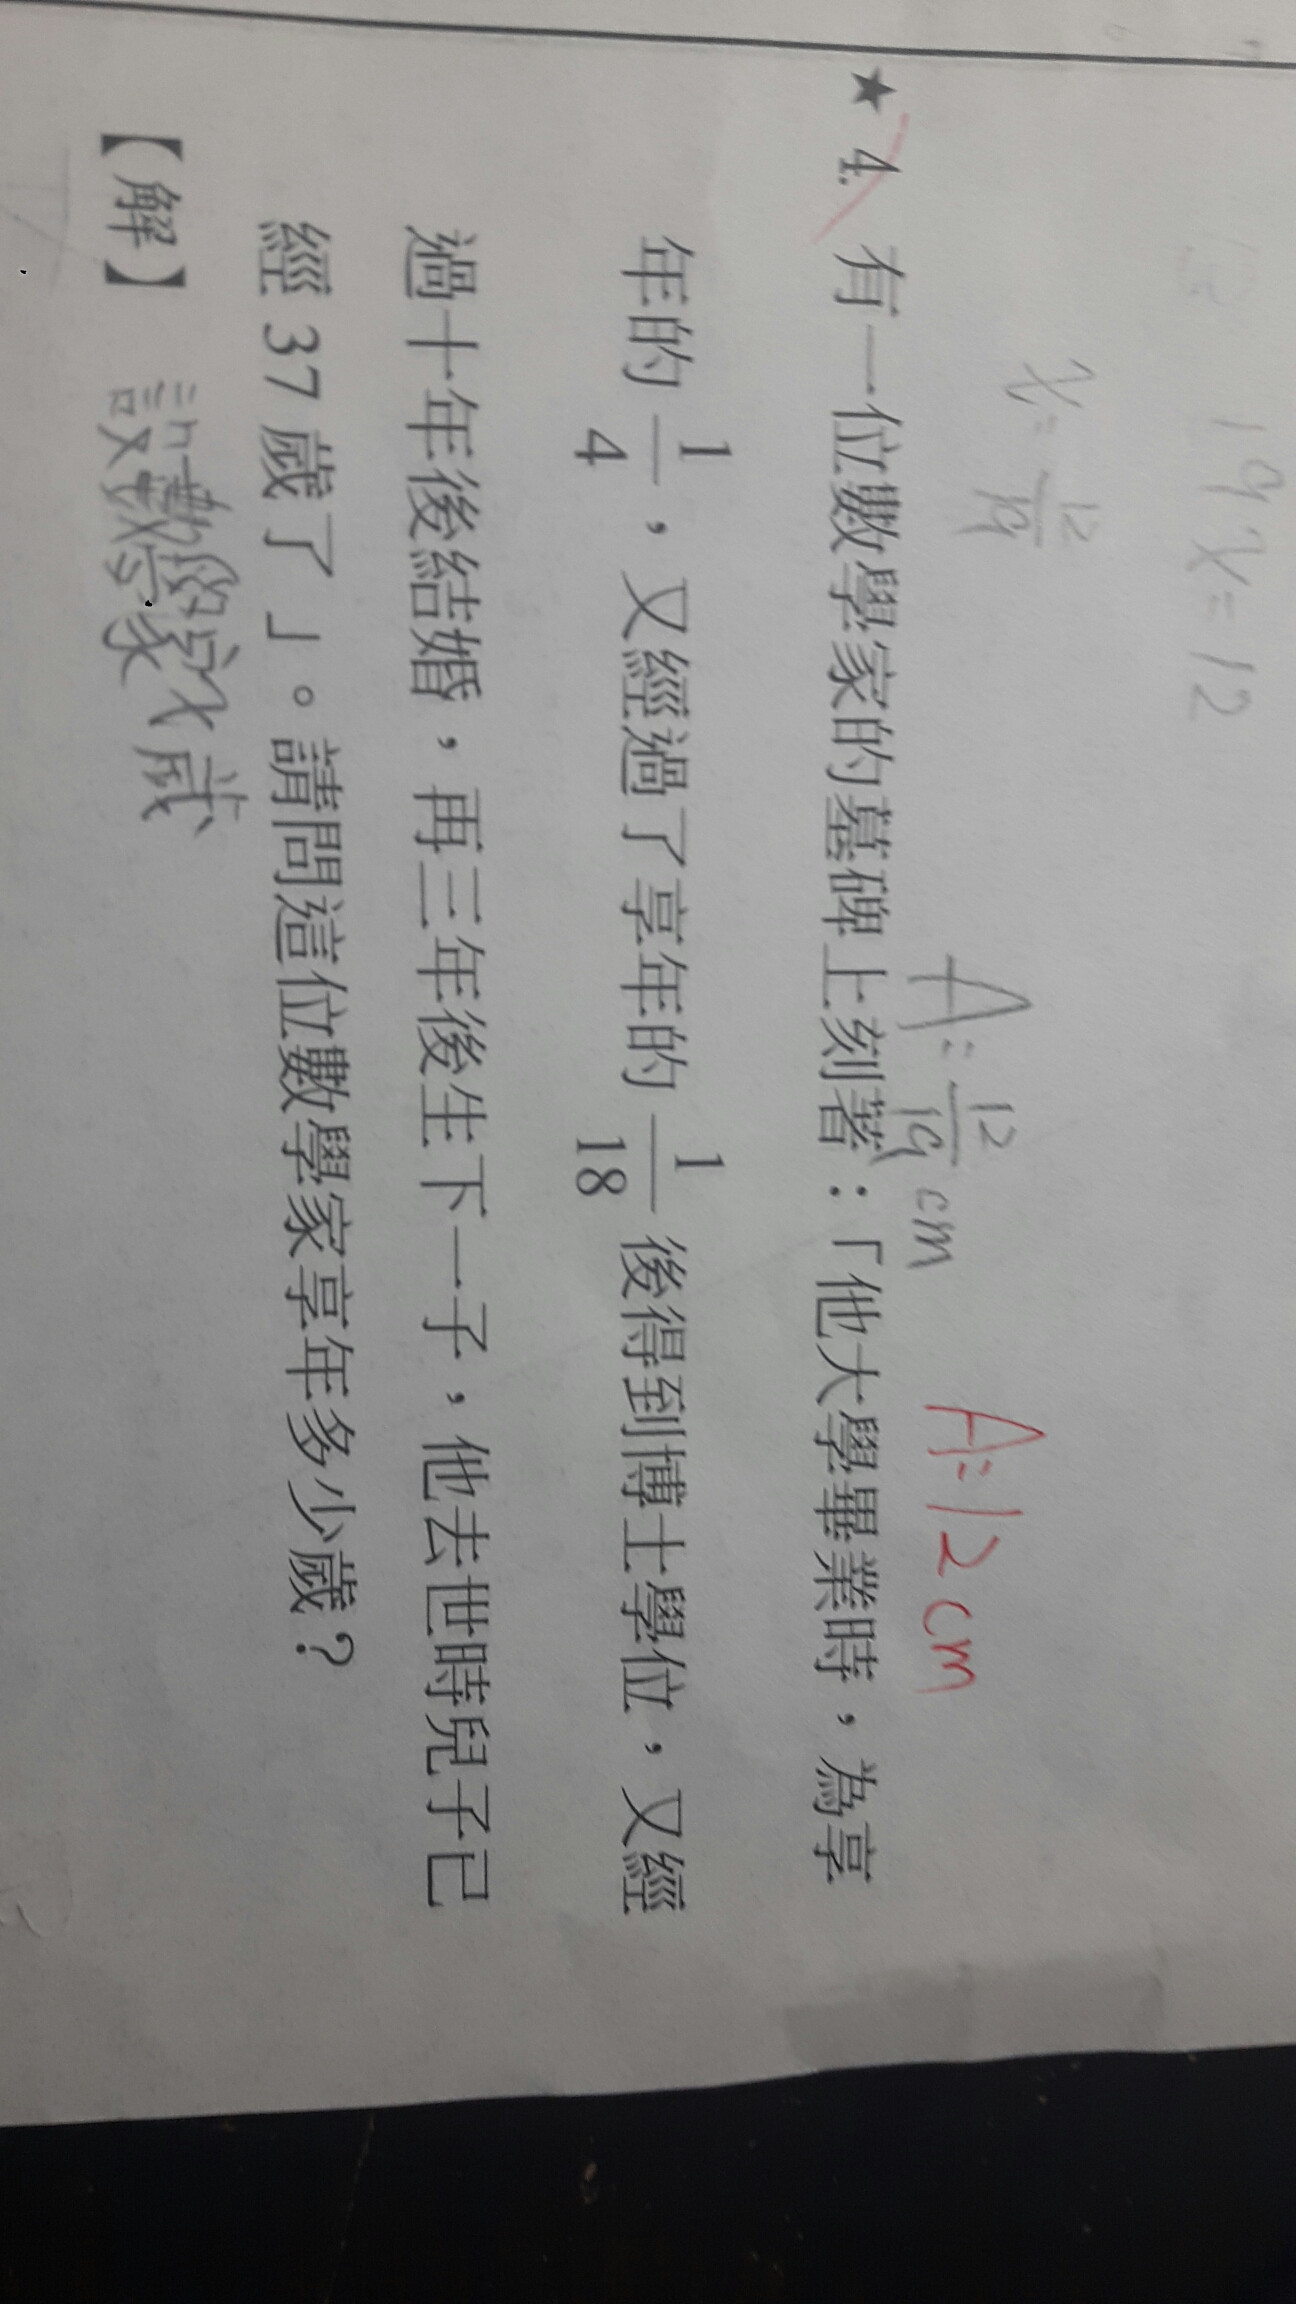 19x=12
x=12/19
A=12/19 cm A=12cm
★4. 有一位數學家的墓碑上刻著：「他大學畢業時，為享
年的 1/4 ，又經過了享年的 1/18 後得到博士學位，又經
過十年後結婚，再三年後生下一子，他去世時兒子已
經 37 歲了」。請問這位數學家享年多少歲？
【解】 設數學家x歲